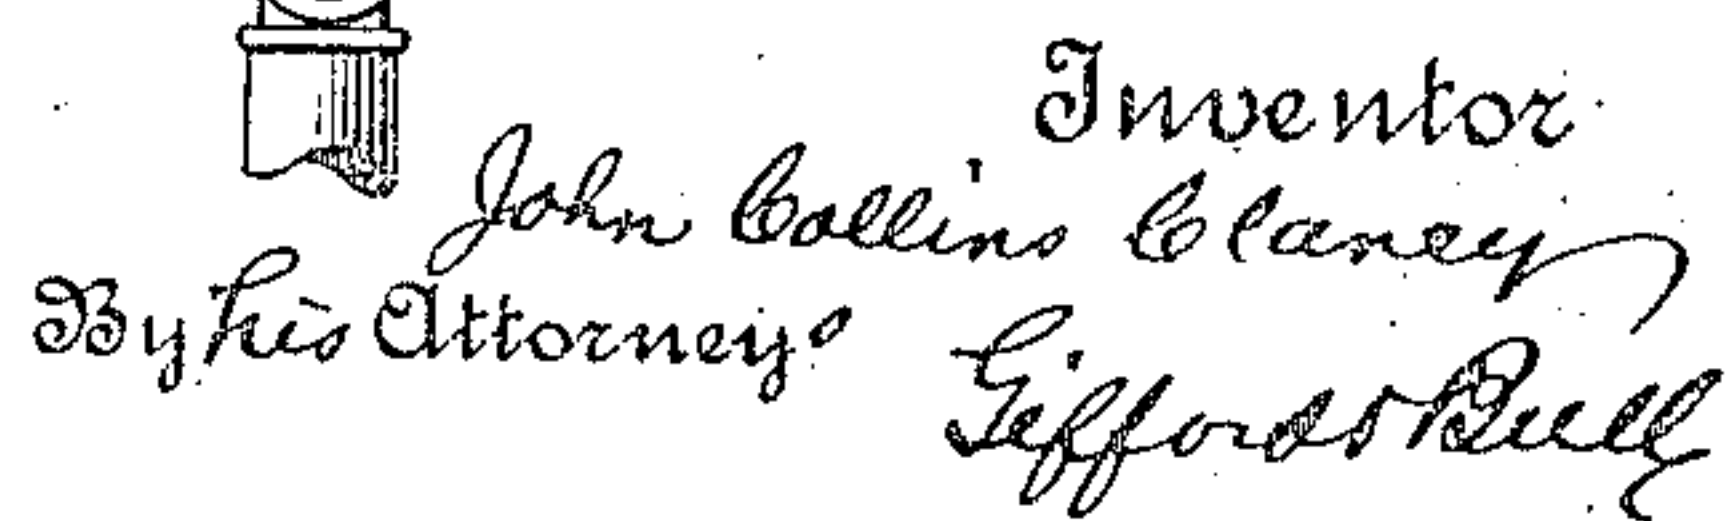 Inventor
John Collins Clancy
By his Attorneys
Gifford & Bull